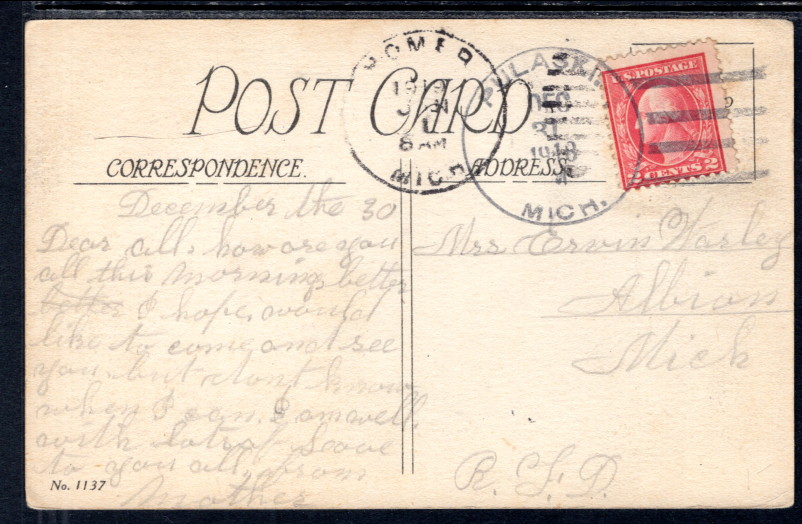 POST CARD
CORRESPONDENCE.
ADDRESS.
HOMER
1919
JAN
1
8 AM
MICH.
PULASKI
DEC
31
1918
MICH.
U.S. POSTAGE
2 CENTS 2
December the 30
Dear all, how are you
all this morning, better
better I hope, would
like to come and see
you but dont know
when I can. I am well.
with lots of Love
to you all, from
Mother
Mrs Ervin Warley
Albion
Mich
R. F. D.
No. 1137